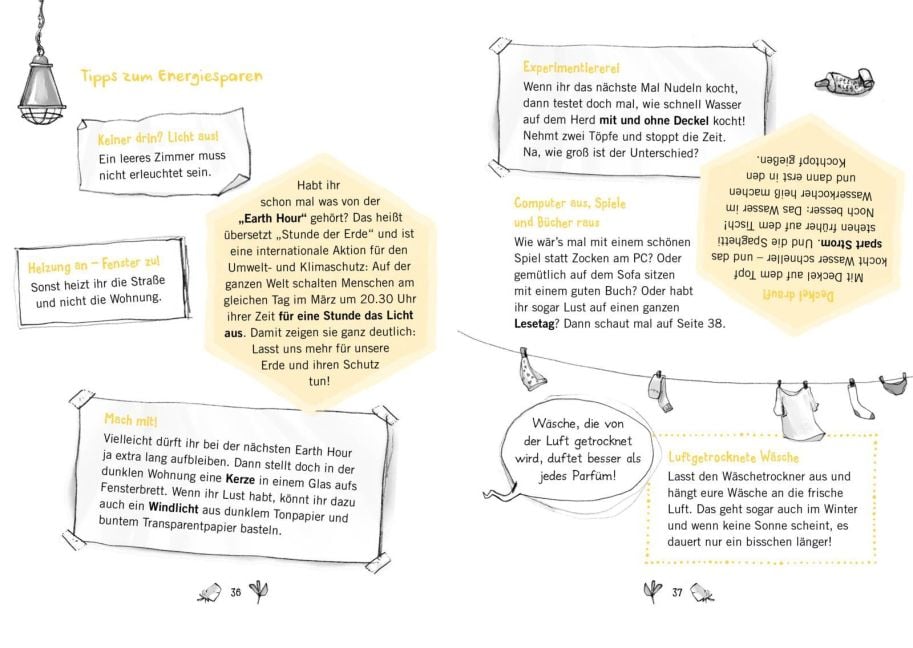 Tipps zum Energiesparen
Keiner drin? Licht aus!
Ein leeres Zimmer muss
nicht erleuchtet sein.
Heizung an – Fenster zu!
Sonst heizt ihr die Straße
und nicht die Wohnung.
Habt ihr
schon mal was von der
„Earth Hour“ gehört? Das heißt
übersetzt „Stunde der Erde“ und ist
eine internationale Aktion für den
Umwelt- und Klimaschutz: Auf der
ganzen Welt schalten Menschen am
gleichen Tag im März um 20.30 Uhr
ihrer Zeit für eine Stunde das Licht
aus. Damit zeigen sie ganz deutlich:
Lasst uns mehr für unsere
Erde und ihren Schutz
tun!
Mach mit!
Vielleicht dürft ihr bei der nächsten Earth Hour
ja extra lang aufbleiben. Dann stellt doch in der
dunklen Wohnung eine Kerze in einem Glas aufs
Fensterbrett. Wenn ihr Lust habt, könnt ihr dazu
auch ein Windlicht aus dunklem Tonpapier und
buntem Transparentpapier basteln.
36
Experimentiererei
Wenn ihr das nächste Mal Nudeln kocht,
dann testet doch mal, wie schnell Wasser
auf dem Herd mit und ohne Deckel kocht!
Nehmt zwei Töpfe und stoppt die Zeit.
Na, wie groß ist der Unterschied?
Deckel drauf!
Mit Deckel auf dem Topf
kocht Wasser schneller – und das
spart Strom. Und die Spaghetti
stehen früher auf dem Tisch!
Noch besser: Das Wasser im
Wasserkocher heiß machen
und dann erst in den
Kochtopf gießen.
Computer aus, Spiele
und Bücher raus
Wie wär’s mal mit einem schönen
Spiel statt Zocken am PC? Oder
gemütlich auf dem Sofa sitzen
mit einem guten Buch? Oder habt
ihr sogar Lust auf einen ganzen
Lesetag? Dann schaut mal auf Seite 38.
Wäsche, die von
der Luft getrocknet
wird, duftet besser als
jedes Parfüm!
Luftgetrocknete Wäsche
Lasst den Wäschetrockner aus und
hängt eure Wäsche an die frische
Luft. Das geht sogar auch im Winter
und wenn keine Sonne scheint, es
dauert nur ein bisschen länger!
37